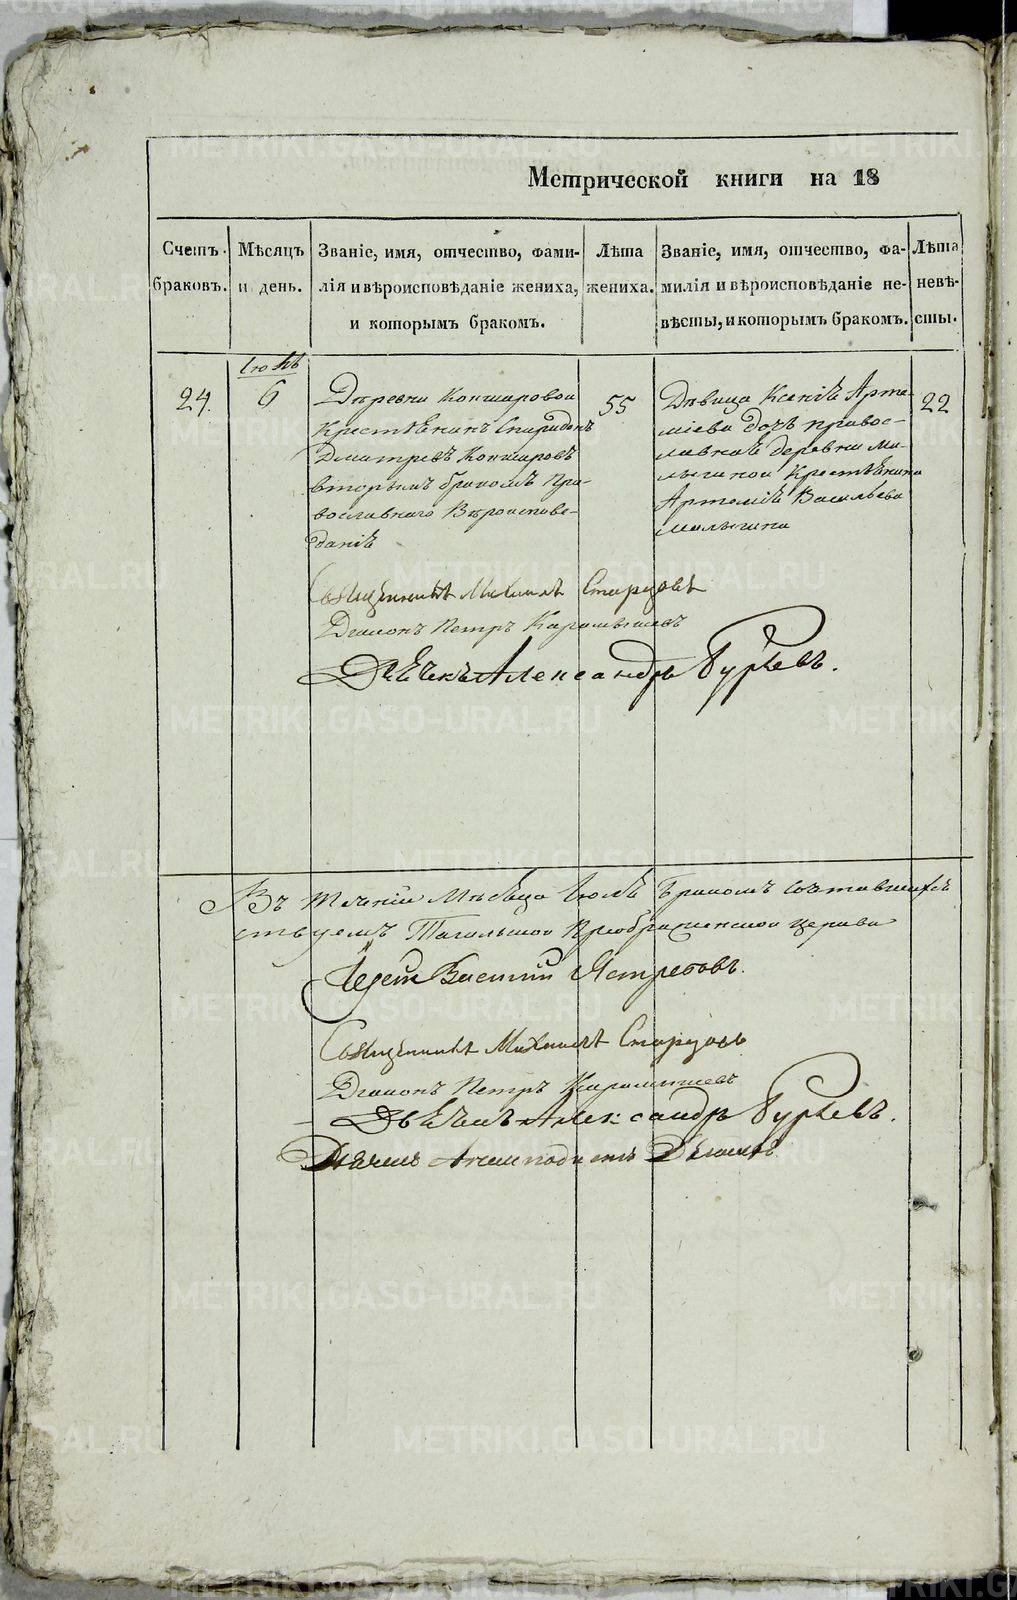 Метрической книги на 18
Счетъ браковъ.
Мѣсяцъ и день.
Званіе, имя, отчество, фами-
лія и вѣроисповѣданіе жениха,
и которымъ бракомъ.
Лѣта
жениха.
Званіе, имя, отчество, фа-
милія и вѣроисповѣданіе не-
вѣсты, и которымъ бракомъ.
Лѣта
невѣ-
сты.
24.
6
Деревни Коншаровой
Крестьянинъ Спиридонъ
Дмитревъ Коншаровъ
вторымъ бракомъ Пра-
вославнаго Вѣроиспове-
даніѣ
55
Дѣвица Ксеніѣ Арте-
міева дочь правос-
лавнаѣ деревни Ма-
лыгиной Крестьянина
Артеміѣ Васильева
Малыгина
22
Священникъ Михаилъ Старцовъ
Диаконъ Петръ Карамышевъ
Александръ Гурьевъ.
Въ теченіи Мѣсяца
Преображенской церкви
Василій Ястребовъ.
Священникъ Михаилъ Старцовъ
Диаконъ Петръ Карамышевъ
Александръ Гурьевъ.
METRIKI.GASO-URAL.RU